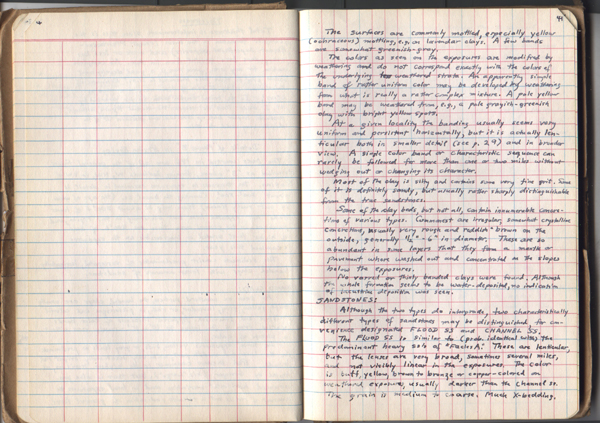 The surfaces are commonly mottled, especially yellow
(ochraceous) mottling, e.g. on lavender clays. A few bands
are somewhat greenish-gray.
The colors as seen on the exposures are modified by
weathering and do not correspond exactly with the colors of
the underlying weathered strata. An apparently simple
band of rather uniform color may be developed by weathering
from what is really a rather complex mixture. A pale yellow
band may be weathered from, e.g., a pale grayish-greenish
clay with bright yellow spots.
At a given locality the banding usually seems very
uniform and persistent horizontally, but it is actually len-
ticular both in smaller detail (see p. 29) and in broader
view. A single color band or characteristic sequence can
rarely be followed for more than one or two miles without
wedging out or changing its character.
Most of the clay is silty and contains some very fine grit. Some
of it is definitely sandy, but usually rather sharply distinguishable
from the true sandstones.
Some of the clay beds, but not all, contain innumerable concre-
tions of various types. Commonest are irregular, somewhat crystalline
concretions, usually very rough and reddish brown on the
outside, generally ½"-6" in diameter. These are so
abundant in some layers that they form a mantle or
pavement where washed out and concentrated on the slopes
below the exposures.
No varved or thinly banded clays were found. Although
the whole formation seems to be water-deposited, no indication
of lacustrine deposition was seen.
SANDSTONES:
Although the two types do intergrade, two characteristically
different types of sandstones may be distinguished, for con-
venience designated FLOOD SS and CHANNEL SS.
The FLOOD SS is similar to (prob. identical with) the
predominant heavy sds of "Facies A". These are lenticular,
but the lenses are very broad, sometimes several miles,
and not visibly linear in the exposures. The color
is buff, yellow, brown to bronze or copper-colored on
weathered exposures, usually darker than the channel ss.
The grain is medium to coarse. Much X-bedding.